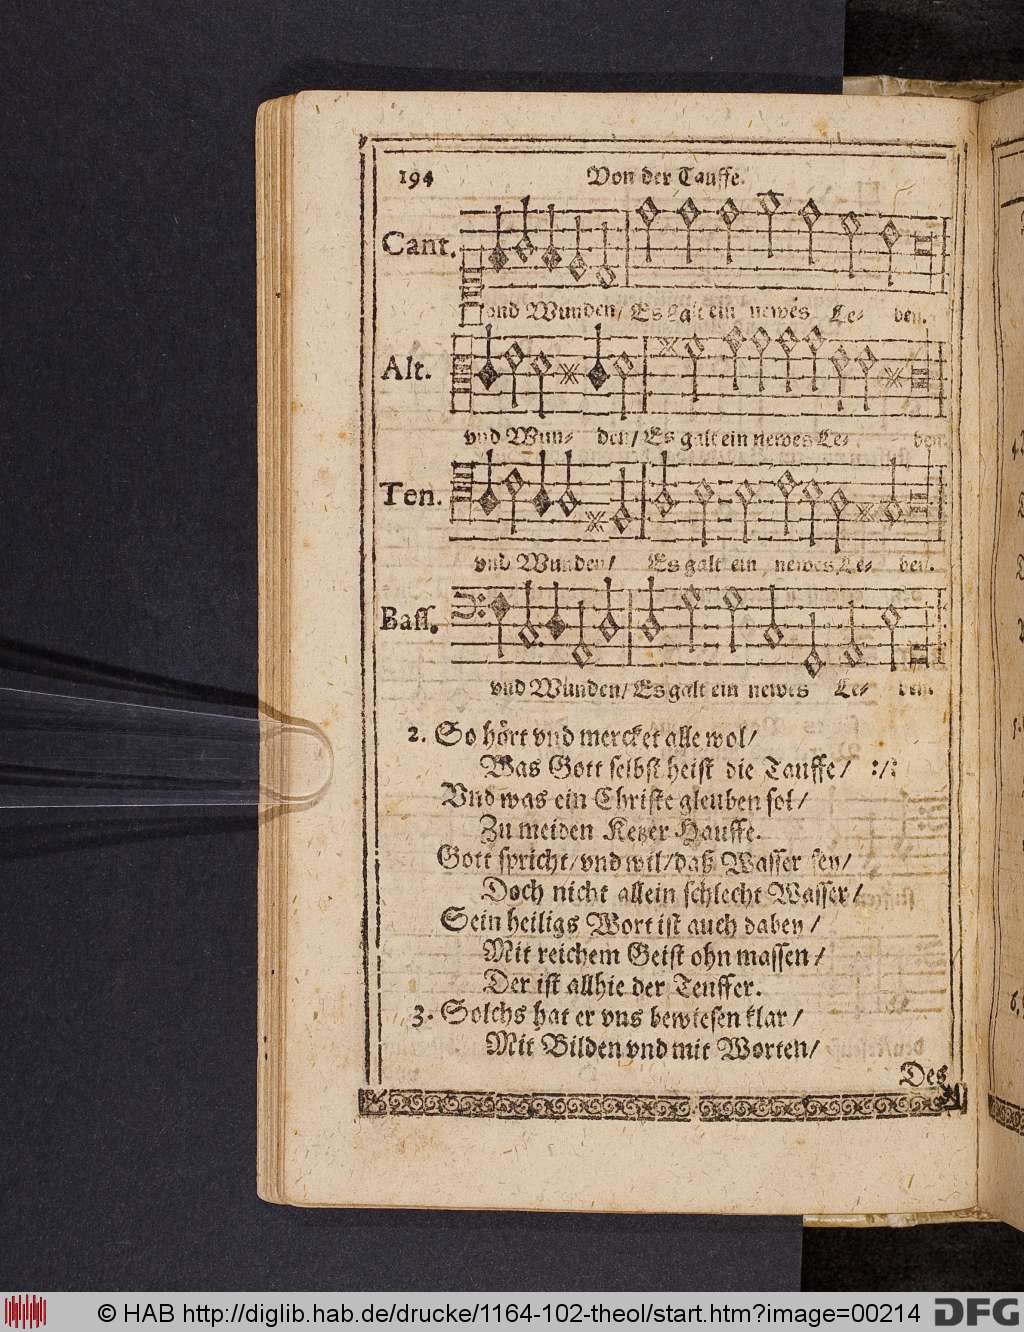 194
Von der Tauffe.
Cant.
vnd Wunden/ Es galt ein newes Le- ben.
Alt.
vnd Wun- den/ Es galt ein newes Le- ben.
Ten.
vnd Wunden/ Es galt ein newes Le- ben.
Bass.
vnd Wunden/ Es galt ein newes Le- ben.
2. So hört vnd mercket alle wol/
Was Gott selbst heist die Tauffe/ :/:
Vnd was ein Christe gleuben sol/
Zu meiden Ketzer Hauffe.
Gott spricht/ vnd wil/ daß Wasser sey/
Doch nicht allein schlecht Wasser/
Sein heiligs Wort ist auch dabey/
Mit reichem Geist ohn massen/
Der ist allhie der Teuffer.
3. Solchs hat er vns bewiesen klar/
Mit Bilden vnd mit Worten/
Des
© HAB http://diglib.hab.de/drucke/1164-102-theol/start.htm?image=00214 DFG